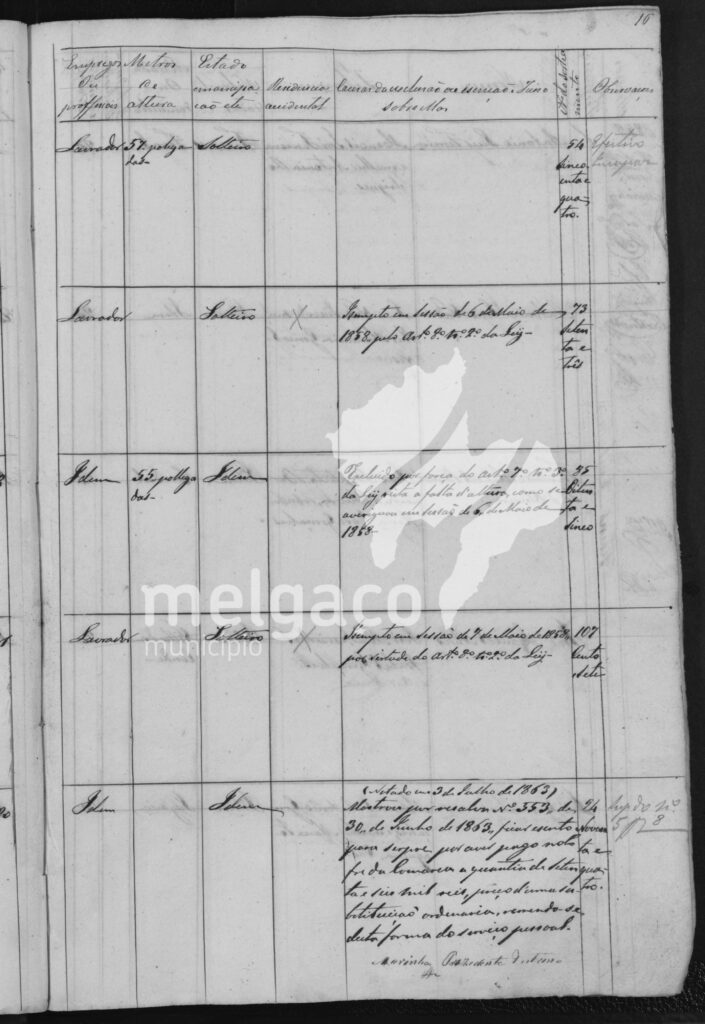 16
Empregos Ou profissões
Metros de altura
Estado emancipação etc
Rendencia accidental
Causas da exclusão ou isenção. Juizo sobre Mos
Nº do Sorteamento
Observações
Lavrador
57. pollegadas
Solteiro
54
sincoenta e quatro.
Efectivo
Lavrador
Solteiro
X
Isempto em sessão de 6 de Maio de
1858. pelo Artº. 8º. nº. 2º. da Ley
73
Setenta e três
Idem
55. pollegadas
Idem
Excluido por força do artº. 7º. nº. 3º.
da Ley a falta d'altura, como se
averigoou em sessão de 6 de Maio de
1858
e sinco
Lavrador
Solteiro
X
Isempto em sessão de 7 de Maio de 1858,
por virtude do Artº. 8º. nº. 2º. da Ley
107
Cento sete
Idem
Idem
(Notado em 3 de Julho de 1863)
Mostrou por resalva Nº. 353, de
30, de Junho de 1863, ficar esento
para sempre, por aver pago no cofre
da Comarca a quantia de setenta
e seis mil reis, preço d'uma substituiçaõ
ordenaria, remindo-se
desta forma do serviço pessoal.
Presidente
Noventa e quatro.
nº 8
melgaço
município